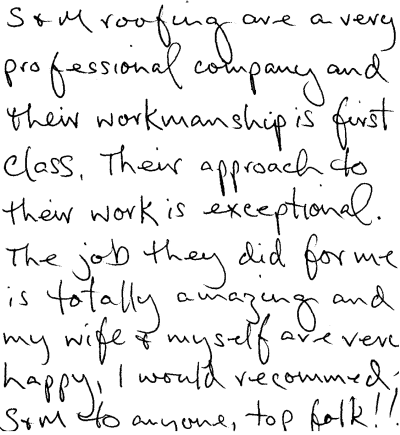 S & M roofing are a very
professional company and
their workmanship is first
class. Their approach to
their work is exceptional.
The job they did for me
is totally amazing and
my wife & myself are very
happy, I would recommed
S&M to anyone, top folk!!